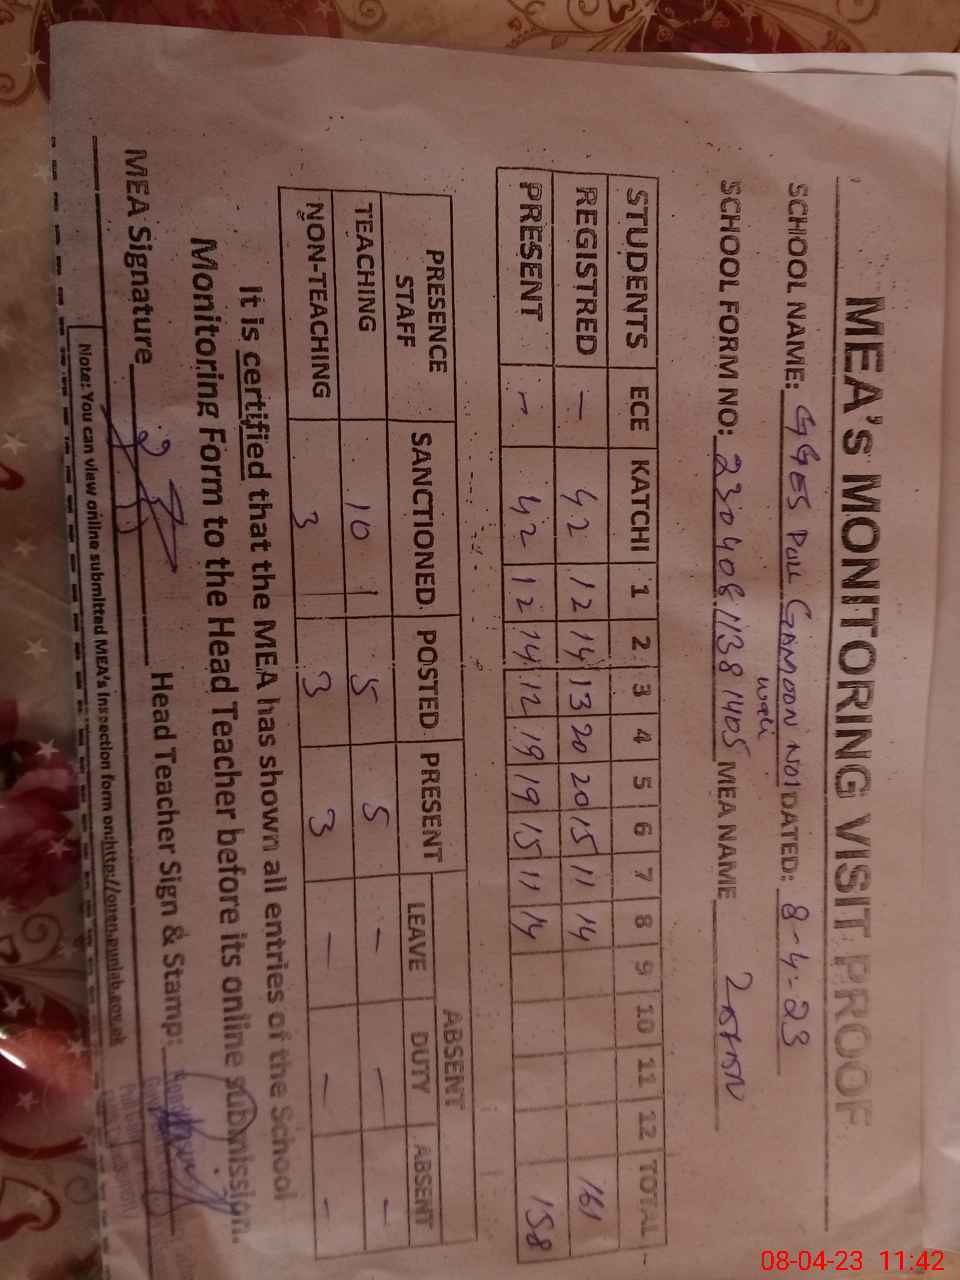 MEA's MONITORING VISIT PROOF
SCHOOL NAME: GGES Pull GAMOON NO1 DATED: 8-4-23
wali
SCHOOL FORM NO: 2304081138 1405 MEA NAME
STUDENTS ECE KATCHI 1 2 3 4 5 6 7 8 9 10 11 12 TOTAL
REGISTRED - 42 12 14 13 20 20 15 11 14 161
PRESENT - 42 12 14 12 19 19 15 11 14 158
PRESENCE STAFF SANCTIONED POSTED PRESENT ABSENT
LEAVE DUTY ABSENT
TEACHING 10 5 5 - - -
NON-TEACHING 3 3 3 - - -
It is certified that the MEA has shown all entries of the School
Monitoring Form to the Head Teacher before its online submission.
MEA Signature Head Teacher Sign & Stamp:
Note: You can view online submitted MEA's Inspection form on
08-04-23 11:42